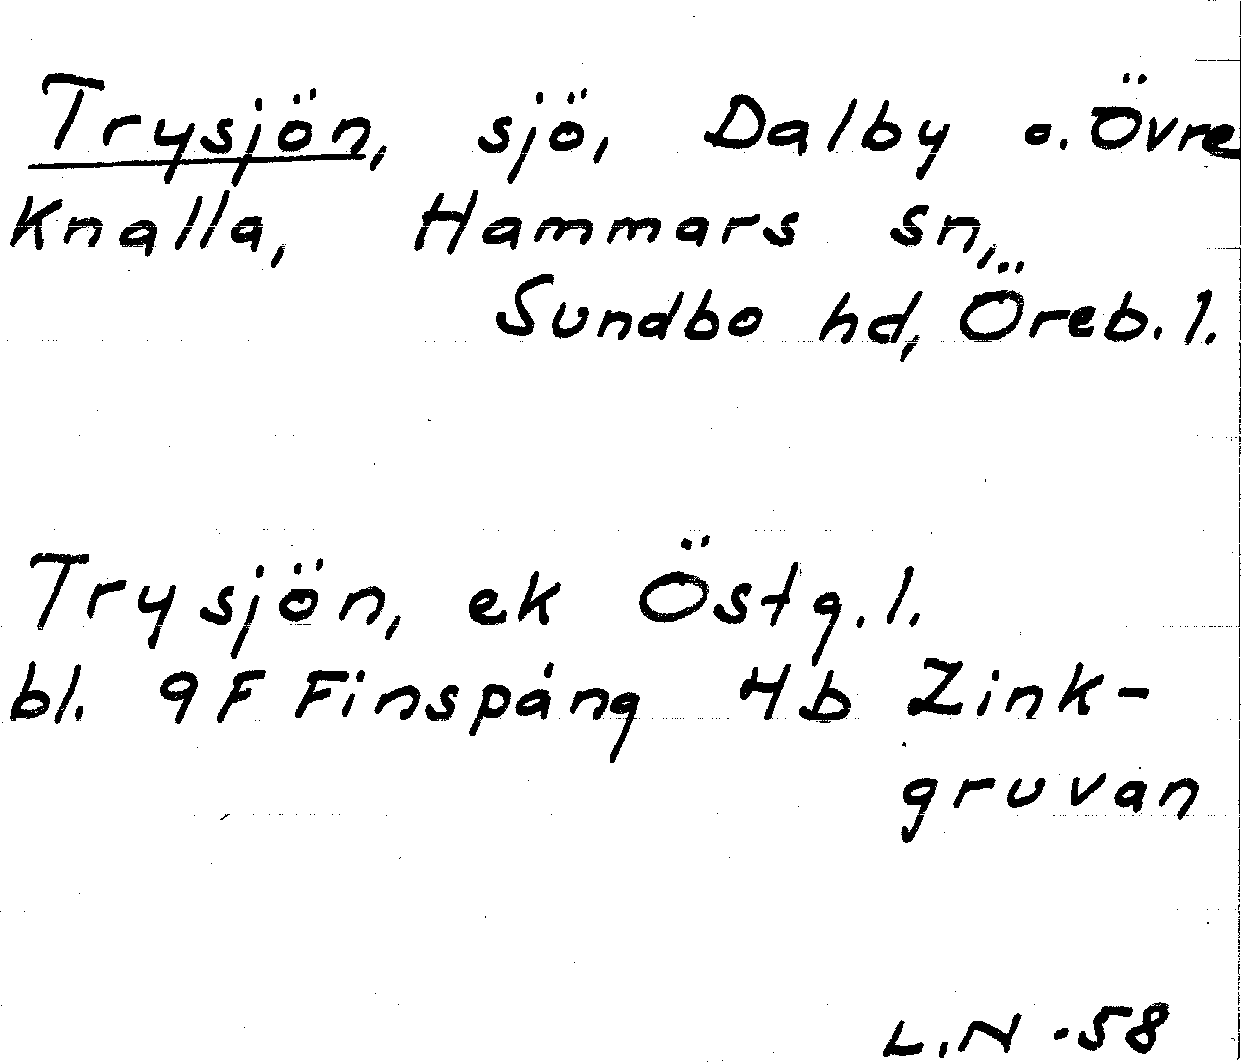 Trysjön, sjö, Dalby o. Övre
Knalla, Hammars sn,
Sundbo hd, Öreb. l.
Trysjön, ek Östg. l.
bl. 9F Finspång 4b Zink-
gruvan
L.N -58